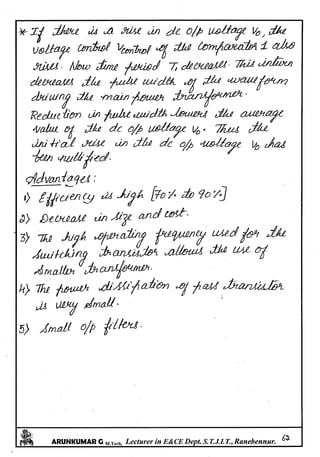 * If there is a rise in dc o/p voltage Vo, the
voltage control Vcontrol of the comparator 1 also
rises. Now time period T1 decreases. This inturn
decreases the pulse width of the waveform
driving the main power transformer.
Reduction in pulse width lowers the average
value of the dc o/p voltage Vo. Thus the
initial rise in the dc o/p voltage Vo has
been nullified.
Advantages:
1) Efficiency is high [70% to 90%]
2) Decrease in size and cost.
3) The high operating frequency used for the
Switching transistor allows the use of
smaller transformer.
4) The power dissipation of pass transistor
is very small.
5) Small o/p filters.
ARUNKUMAR G M.Tech, Lecturer in E&CE Dept. S.T.J.I.T., Ranebennur. 62